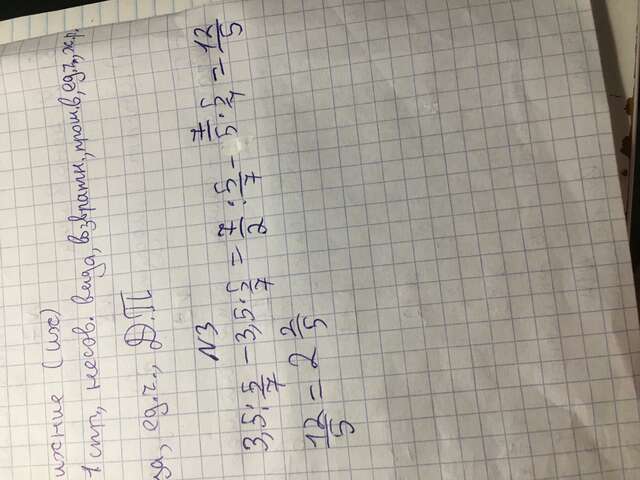 ижние (их)
1 спр., несов. вида, возвратн., прош.в, ед.ч, ж.р,
да, ед.ч., Д.П
N3
3,5 : 5/7 - 3,5 · 2/7 = 7/2 : 5/7 - 7/5 · 5/7 = 12/5
12/5 = 2 2/5